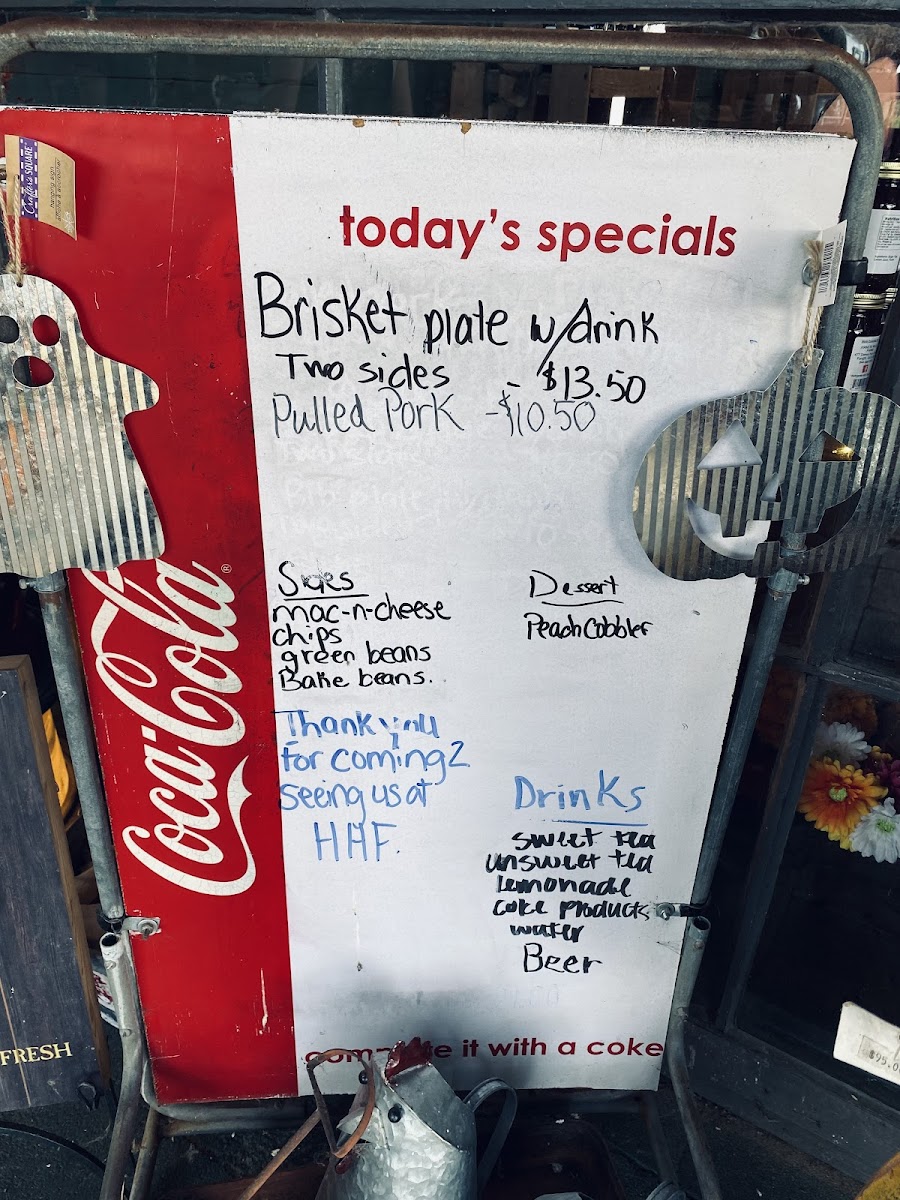 today's specials
Brisket plate w/drink
Two sides - $13.50
Pulled Pork - $10.50
Sides
mac-n-cheese
chips
green beans
Bake beans.
Dessert
Peach Cobbler
Thank you
for coming 2
seeing us at
HHF.
Drinks
sweet tea
unsweet tea
lemonade
coke products
water
Beer
Coca-Cola®
complete it with a coke
FRESH
Crafter's SQUARE